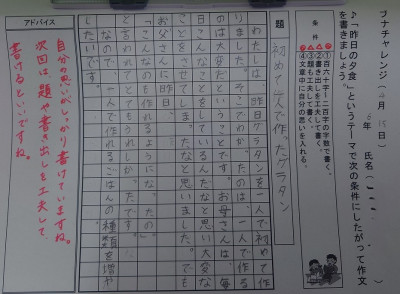 ブナチャレンジ（4月15日）
6年　氏名（
♪「昨日の夕食」というテーマで次の条件にしたがって作文
を書きましょう。
条件
①百六十字～二百字の字数で書く。
②書き出しを工夫して書く。
③題を工夫して書く。
④文章中に自分の思いを入れる。
題　初めて一人で作ったグラタン
わたしは、昨日グラタンを一人で初めて作
りました。そこでわかったのは、一人で作る
のは大変だということです。お母さんは、毎
日こんなことをしているんだなと思い大変な
ことをさせてしまったなと思いました。でも
お父さんに昨日、
「こんなのも作れるようになったの」
と言われてうれしかったです。
なので、一人で作れるごはんの種類を増や
したいです。
アドバイス
自分の思いがしっかり書けていますね。
次回は、題や書き出しを工夫して
書けるといいですね。